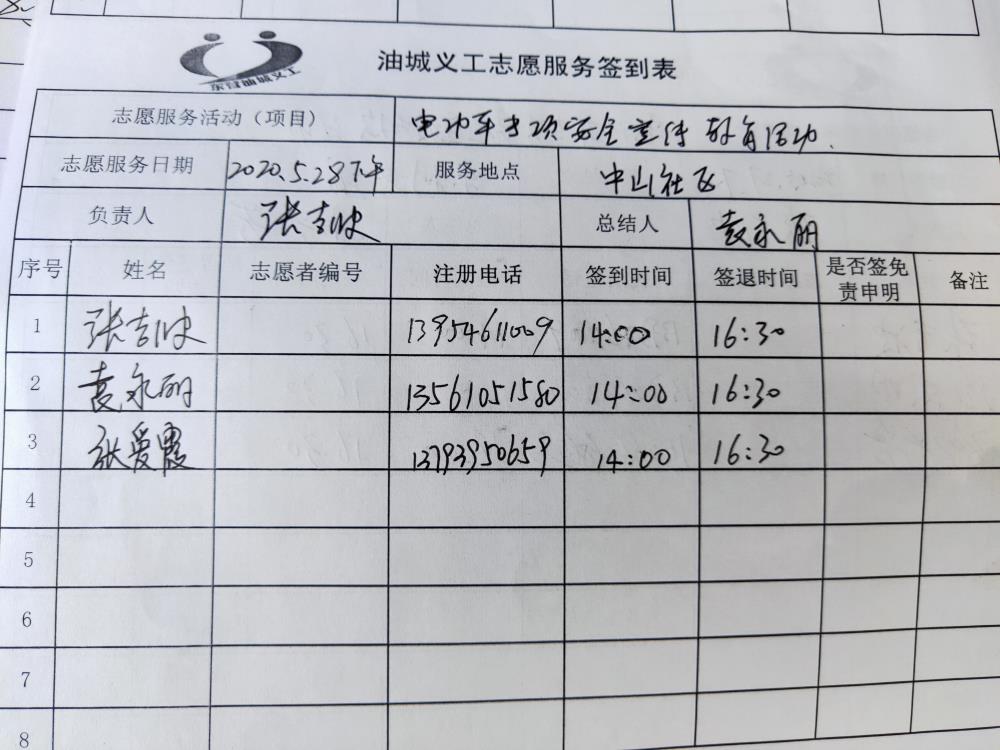 东营油城义工
油城义工志愿服务签到表
志愿服务活动（项目） 电动车专项安全宣传教育活动.
志愿服务日期 2020.5.28下午 服务地点 中山社区
负责人 张吉波 总结人 袁永丽
序号 姓名 志愿者编号 注册电话 签到时间 签退时间 是否签免责申明 备注
1 张吉波 13954611009 14:00 16:30
2 袁永丽 13561051580 14:00 16:30
3 张爱霞 13793950659 14:00 16:30
4
5
6
7
8